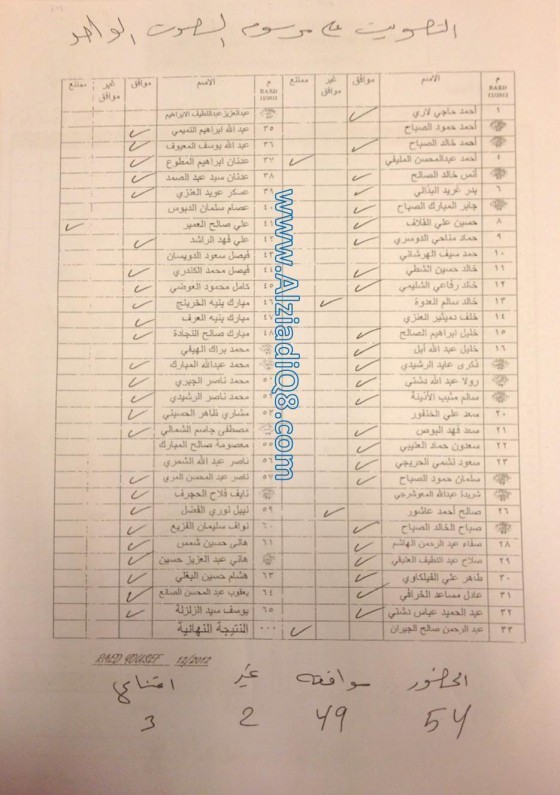 التصويت على مرسوم الصوت الواحد
م RAED 12/2012 الاسم موافق غير موافق ممتنع م RAED 12/2012 الاسم موافق غير موافق ممتنع
١ أحمد حاجي لاري عبدالعزيز عبداللطيف الابراهيم
أحمد حمود الصباح ٣٥ عبد الله ابراهيم التميمي
أحمد خالد الصباح ٣٦ عبد الله يوسف المعيوف
٤ أحمد عبدالمحسن المليفي ٣٧ عدنان ابراهيم المطوع
أنس خالد الصالح ٣٨ عدنان سيد عبد الصمد
٦ بدر غريد البذالي ٣٩ عسكر عويد العنزي
جابر المبارك الصباح ٤٠ عصام سلمان الدبوس
٨ حسين علي القلاف ٤١ علي صالح العمير
٩ حماد مناحي الدوسري ٤٢ علي فهد الراشد
١٠ حمد سيف الهرشاني فيصل سعود الدويسان
١١ خالد حسين الشطي ٤٤ فيصل محمد الكندري
١٢ خالد رفاعي الشليمي ٤٥ كامل محمود العوضي
١٣ خالد سالم العدوة ٤٦ مبارك بنيه الخرينج
١٤ خلف دميثير العنزي مبارك بنيه العرف
١٥ خليل ابراهيم الصالح ٤٨ مبارك صالح النجادة
١٦ خليل عبد الله أبل محمد براك الهيفي
ذكرى عايد الرشيدي محمد عبدالله المبارك
رولا عبد الله دشتي محمد ناصر الجبري
سالم مثيب الأذينة محمد ناصر الرشيدي
٢٠ سعد علي الخنفور مشاري ظاهر الحسيني
٢١ سعد فهد البوص مصطفى جاسم الشمالي
٢٢ سعدون حماد العتيبي معصومة صالح المبارك
٢٣ سعود نشمي الحريجي ناصر عبد الله الشمري
سلمان حمود الصباح ٥٧ ناصر عبد المحسن المري
شريدة عبدالله المعوشرجي نايف فلاح الحجرف
٢٦ صالح أحمد عاشور ٥٩ نبيل نوري الفضل
صباح الخالد الصباح ٦٠ نواف سليمان الفزيع
٢٨ صفاء عبد الرحمن الهاشم ٦١ هاني حسين شمس
٢٩ صلاح عبد اللطيف العتيقي هاني عبد العزيز حسين
٣٠ طاهر علي الفيلكاوي ٦٣ هشام حسين البغلي
٣١ عادل مساعد الخرافي ٦٤ يعقوب عبد المحسن الصانع
٣٢ عبد الحميد عباس دشتي ٦٥ يوسف سيد الزلزلة
٣٣ عبد الرحمن صالح الجيران ... النتيجة النهائية
RAED YOUSEF 12/2012
الحضور موافقه غير امتناع
54 49 2 3
www.AlziadiQ8.com